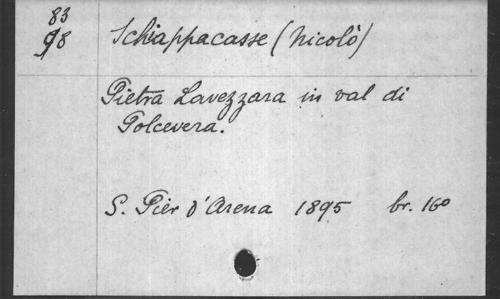 83
98
Schiappacasse (Nicolò)
Pietra Lavezzara in val di
Polcevera.
S. Pier d'Arena 1895 br. 16º